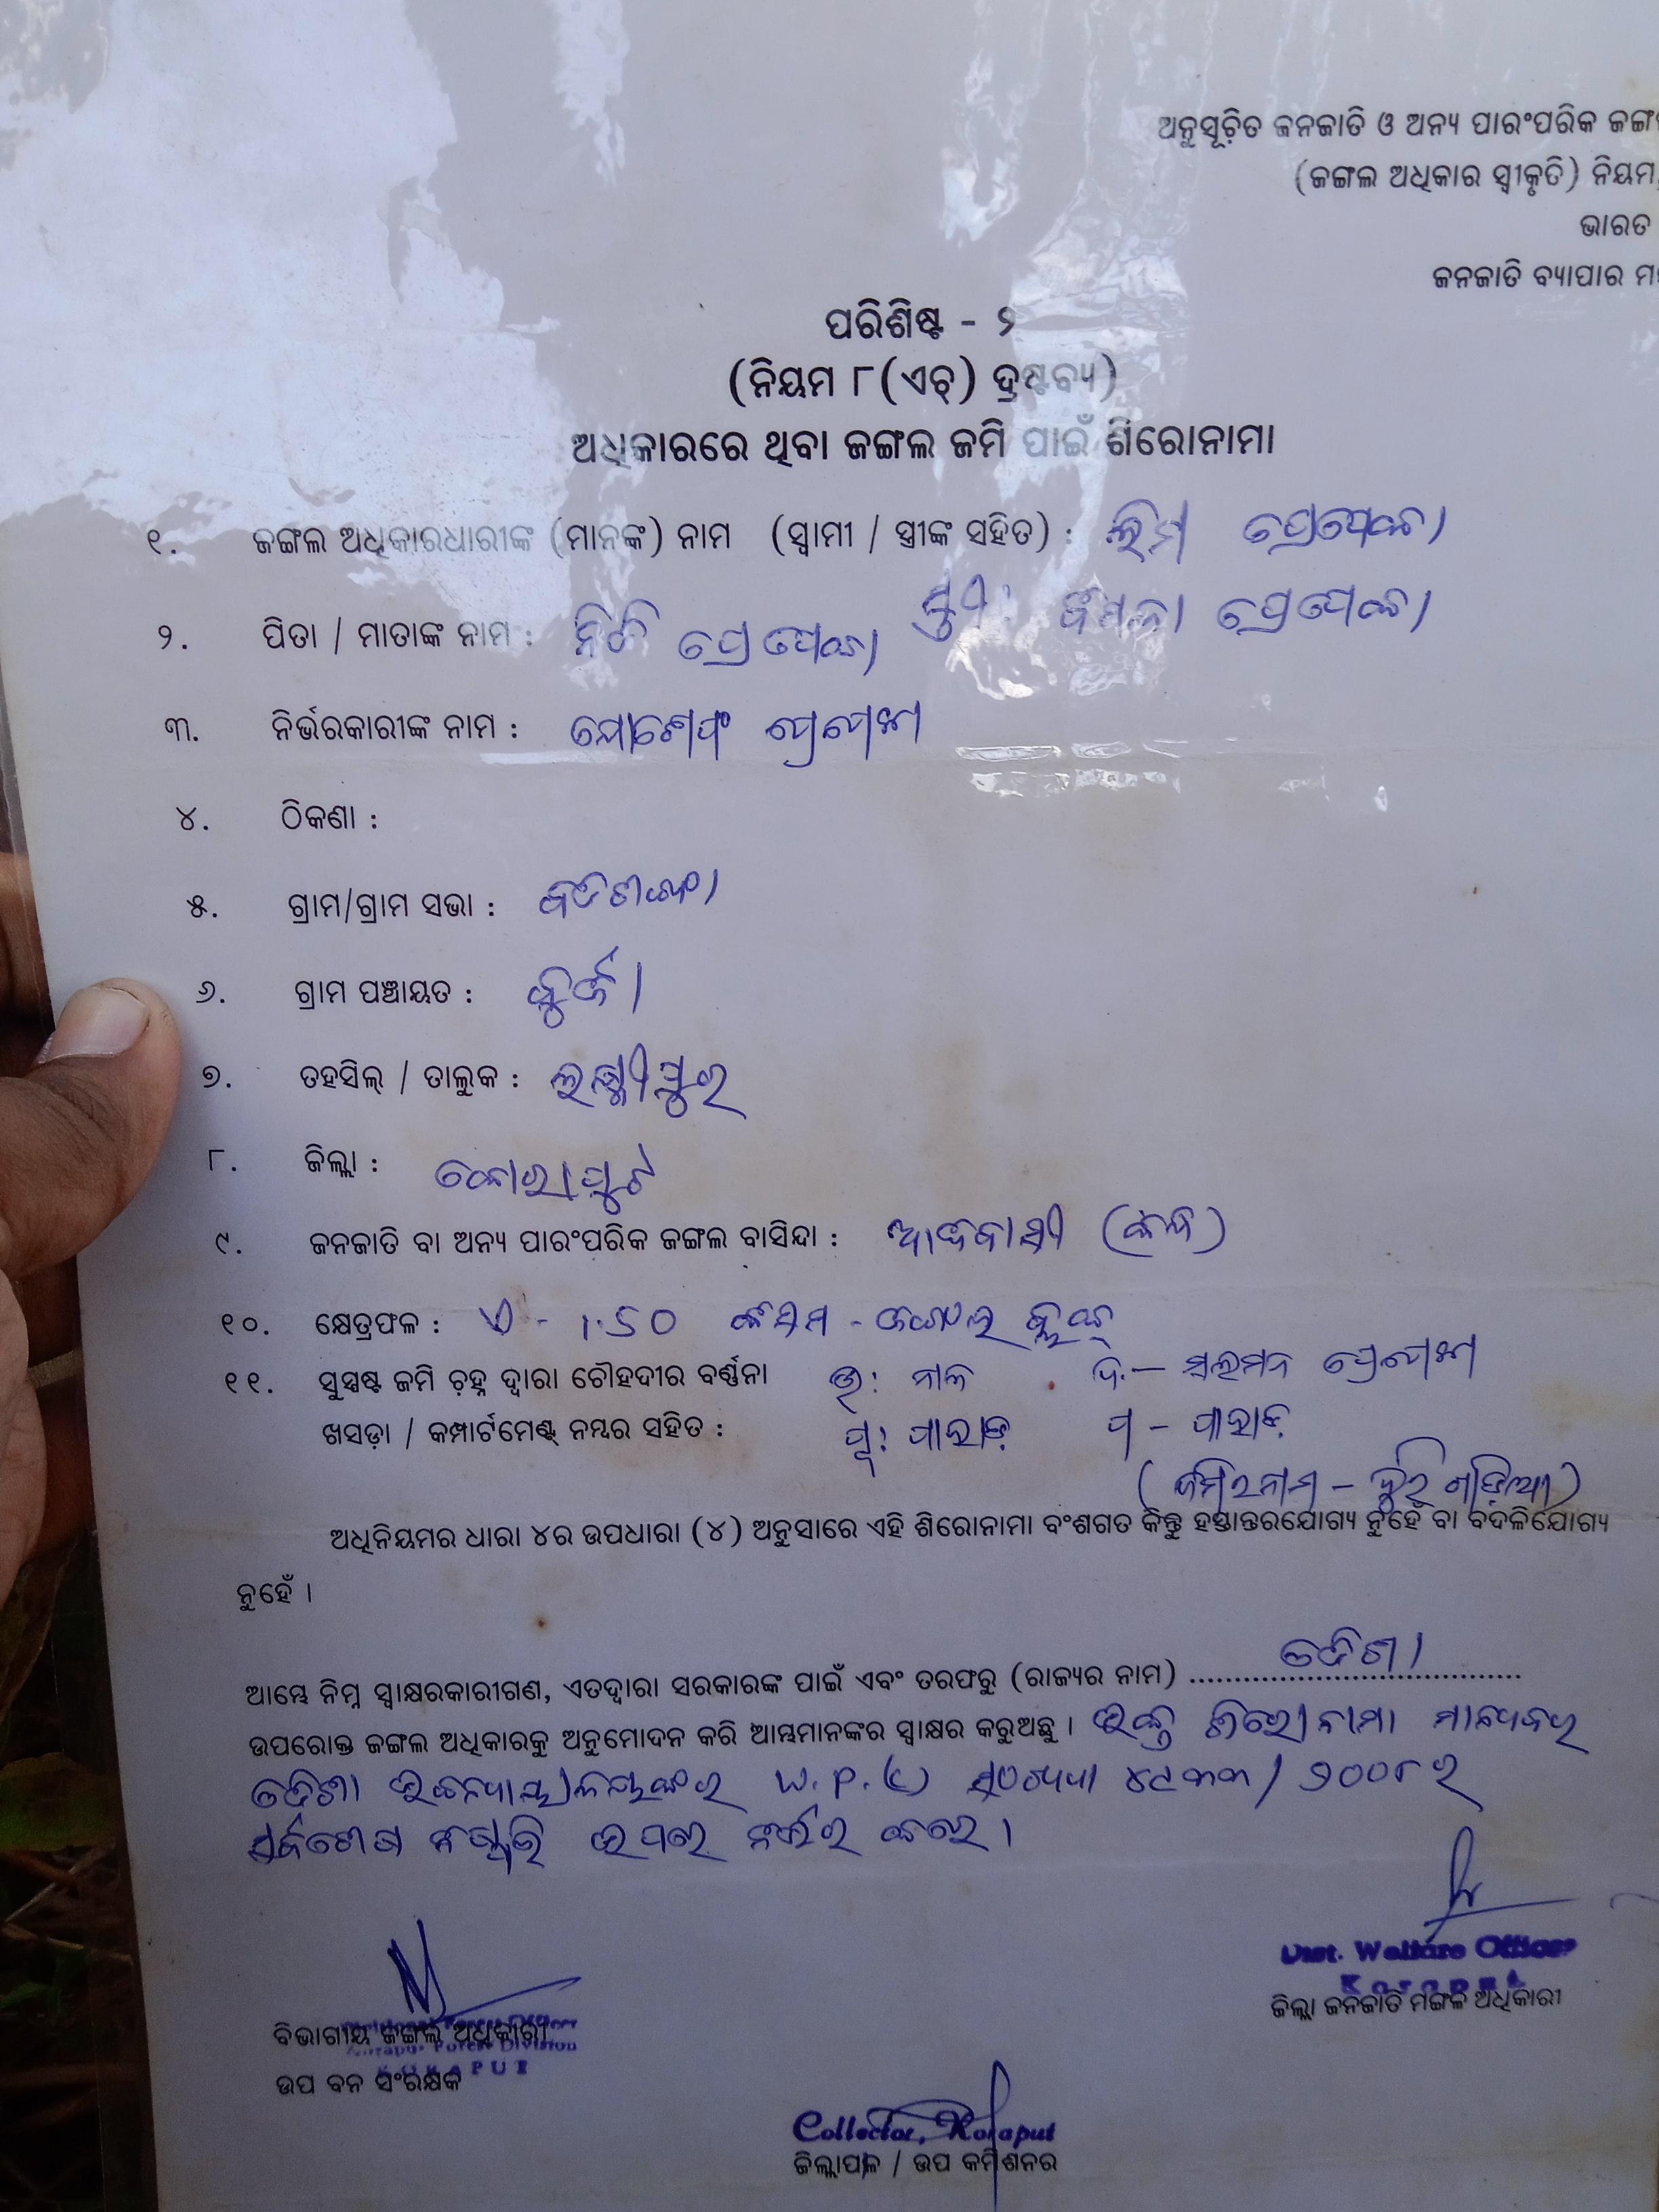 ଅନୁସୂଚିତ ଜନଜାତି ଓ ଅନ୍ୟ ପାରଂପରିକ ଜଙ୍ଗ
(ଜଙ୍ଗଲ ଅଧିକାର ସ୍ୱୀକୃତି) ନିୟମ,
ଭାରତ
ଜନଜାତି ବ୍ୟାପାର ମ
ପରିଶିଷ୍ଟ - ୨
(ନିୟମ ୮(ଏଚ୍) ଦ୍ରଷ୍ଟବ୍ୟ)
ଅଧିକାରରେ ଥିବା ଜଙ୍ଗଲ ଜମି ପାଇଁ ଶିରୋନାମା
୧. ଜଙ୍ଗଲ ଅଧିକାରଧାରୀଙ୍କ (ମାନଙ୍କ) ନାମ (ସ୍ୱାମୀ / ସ୍ତ୍ରୀଙ୍କ ସହିତ) :
୨. ପିତା / ମାତାଙ୍କ ନାମ :
୩. ନିର୍ଭରକାରୀଙ୍କ ନାମ :
୪. ଠିକଣା :
୫. ଗ୍ରାମ/ଗ୍ରାମ ସଭା :
୬. ଗ୍ରାମ ପଞ୍ଚାୟତ :
୭. ତହସିଲ୍ / ତାଲୁକ : ଲକ୍ଷ୍ମୀପୁର
୮. ଜିଲ୍ଲା : କୋରାପୁଟ
୯. ଜନଜାତି ବା ଅନ୍ୟ ପାରଂପରିକ ଜଙ୍ଗଲ ବାସିନ୍ଦା : ଆଦିବାସୀ (କନ୍ଧ)
୧୦. କ୍ଷେତ୍ରଫଳ : ଏ - 1.50 କିସମ - ଜଙ୍ଗଲ
୧୧. ସୁସ୍ପଷ୍ଟ ଜମି ଚିହ୍ନ ଦ୍ୱାରା ଚୌହଦୀର ବର୍ଣ୍ଣନା ଉ: ନାଳ ଦ.-
ଖସଡ଼ା / କମ୍ପାର୍ଟମେଣ୍ଟ୍ ନମ୍ବର ସହିତ : ପୂ: ପାହାଡ଼ ପ - ପାହାଡ଼
(ଜମିରନାମ -
ଅଧିନିୟମର ଧାରା ୪ର ଉପଧାରା (୪) ଅନୁସାରେ ଏହି ଶିରୋନାମା ବଂଶଗତ କିନ୍ତୁ ହସ୍ତାନ୍ତରଯୋଗ୍ୟ ନୁହେଁ ବା ବଦଳିଯୋଗ୍ୟ
ନୁହେଁ ।
ଆମ୍ଭେ ନିମ୍ନ ସ୍ୱାକ୍ଷରକାରୀଗଣ, ଏତଦ୍ୱାରା ସରକାରଙ୍କ ପାଇଁ ଏବଂ ତରଫରୁ (ରାଜ୍ୟର ନାମ) ଓଡିଶା
ଉପରୋକ୍ତ ଜଙ୍ଗଲ ଅଧିକାରକୁ ଅନୁମୋଦନ କରି ଆମ୍ଭମାନଙ୍କର ସ୍ୱାକ୍ଷର କରୁଅଛୁ । ଉକ୍ତ ଶିରୋନାମା ମାନ୍ୟବର
ଓଡିଶା ଉଚ୍ଚନ୍ୟାୟାଳୟଙ୍କର W.P.(C) ସଂଖ୍ୟା ୪୯୩୩/୨୦୦୮ ର
ସର୍ବଶେଷ ନିଷ୍ପତ୍ତି ଉପରେ ନିର୍ଭର କରେ ।
Dist. Welfare Officer
Koraput
ଜିଲ୍ଲା ଜନଜାତି ମଙ୍ଗଳ ଅଧିକାରୀ
Divisional Forest Officer
ବିଭାଗୀୟ ଜଙ୍ଗଲ ଅଧିକାରୀ
Koraput Forest Division
KORAPUT
ଉପ ବନ ସଂରକ୍ଷକ
Collector, Koraput
ଜିଲ୍ଲାପାଳ / ଉପ କମିଶନର